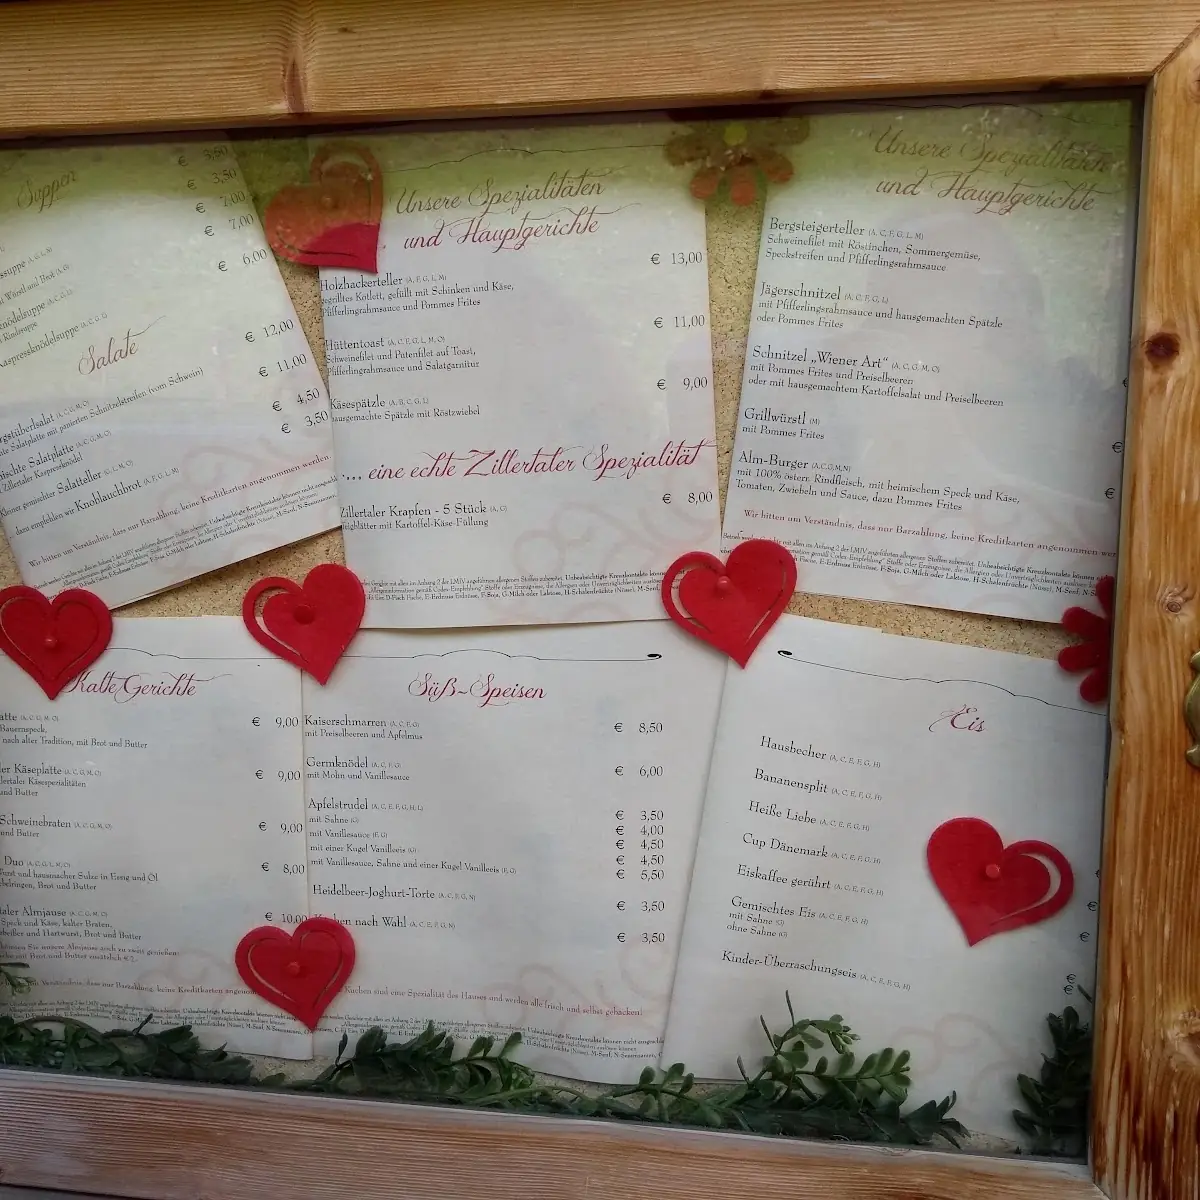 Suppen
€ 3,50
€ 3,50
€ 7,00
€ 7,00
€ 6,00
Salate
€ 12,00
€ 11,00
€ 4,50
€ 3,50
mit panierten Schnitzelstreifen (vom Schwein)
Salatplatte (A, C, G, M, O)
Zillertaler Kaspressknödel
Kleiner gemischter Salatteller (G, L, M, O)
dazu empfehlen wir Knoblauchbrot (A, F, G, L, M)
Wir bitten um Verständnis, dass nur Barzahlung, keine Kreditkarten angenommen werden.
Unsere Spezialitäten
und Hauptgerichte
€ 13,00
Holzhackerteller (A, F, G, L, M)
gegrilltes Kotlett, gefüllt mit Schinken und Käse,
Pfifferlingrahmsauce und Pommes Frites
€ 11,00
Hüttentoast (A, C, F, G, L, M, O)
Schweinefilet und Putenfilet auf Toast,
Pfifferlingrahmsauce und Salatgarnitur
€ 9,00
Käsespätzle (A, B, C, G, L)
hausgemachte Spätzle mit Röstzwiebel
... eine echte Zillertaler Spezialität
€ 8,00
Zillertaler Krapfen - 5 Stück (A, G)
Teigblätter mit Kartoffel-Käse-Füllung
Unsere Spezialitäten
und Hauptgerichte
Bergsteigerteller (A, C, F, G, L, M)
Schweinefilet mit Röstinchen, Sommergemüse,
Speckstreifen und Pfifferlingsrahmsauce
Jägerschnitzel (A, C, F, G, L)
mit Pfifferlingsrahmsauce und hausgemachten Spätzle
oder Pommes Frites
Schnitzel „Wiener Art“ (A, C, G, M, O)
mit Pommes Frites und Preiselbeeren
oder mit hausgemachtem Kartoffelsalat und Preiselbeeren
Grillwürstl (M)
mit Pommes Frites
Alm-Burger (A,C,G,M,N)
mit 100% österr. Rindfleisch, mit heimischem Speck und Käse,
Tomaten, Zwiebeln und Sauce, dazu Pommes Frites
Wir bitten um Verständnis, dass nur Barzahlung, keine Kreditkarten angenommen wer
Kalte Gerichte
(A, C, G, M, O) € 9,00
Bauernspeck,
nach alter Tradition, mit Brot und Butter
Käseplatte (A, C, G, M, O) € 9,00
Käsespezialitäten
und Butter
Schweinebraten (A, C, G, M, O) € 9,00
und Butter
Duo (A, C, G, L, M, O) € 8,00
und hausmacher Sulze in Essig und Öl
Brot und Butter
Almjause (A, C, G, M, O) € 10,00
Speck und Käse, kalter Braten,
und Hartwurst, Brot und Butter
Süß~Speisen
Kaiserschmarren (A, C, F, G) € 8,50
mit Preiselbeeren und Apfelmus
Germknödel (A, C, F, G) € 6,00
mit Mohn und Vanillesauce
Apfelstrudel (A, C, E, F, G, H, L) € 3,50
mit Sahne (G) € 4,00
mit Vanillesauce (F, G) € 4,50
mit einer Kugel Vanilleeis (G) € 4,50
mit Vanillesauce, Sahne und einer Kugel Vanilleeis (F, G) € 5,50
Heidelbeer-Joghurt-Torte (A, C, F, G, N) € 3,50
nach Wahl (A, C, E, F, G, N) € 3,50
Kuchen sind eine Spezialität des Hauses und werden alle frisch und selbst gebacken!
Eis
Hausbecher (A, C, E, F, G, H)
Bananensplit (A, C, E, F, G, H)
Heiße Liebe (A, C, E, F, G, H)
Cup Dänemark (A, C, E, F, G, H)
Eiskaffee gerührt (A, C, E, F, G, H)
Gemischtes Eis (A, C, E, F, G, H)
mit Sahne (G)
ohne Sahne (G)
Kinder-Überraschungseis (A, C, E, F, G, H)